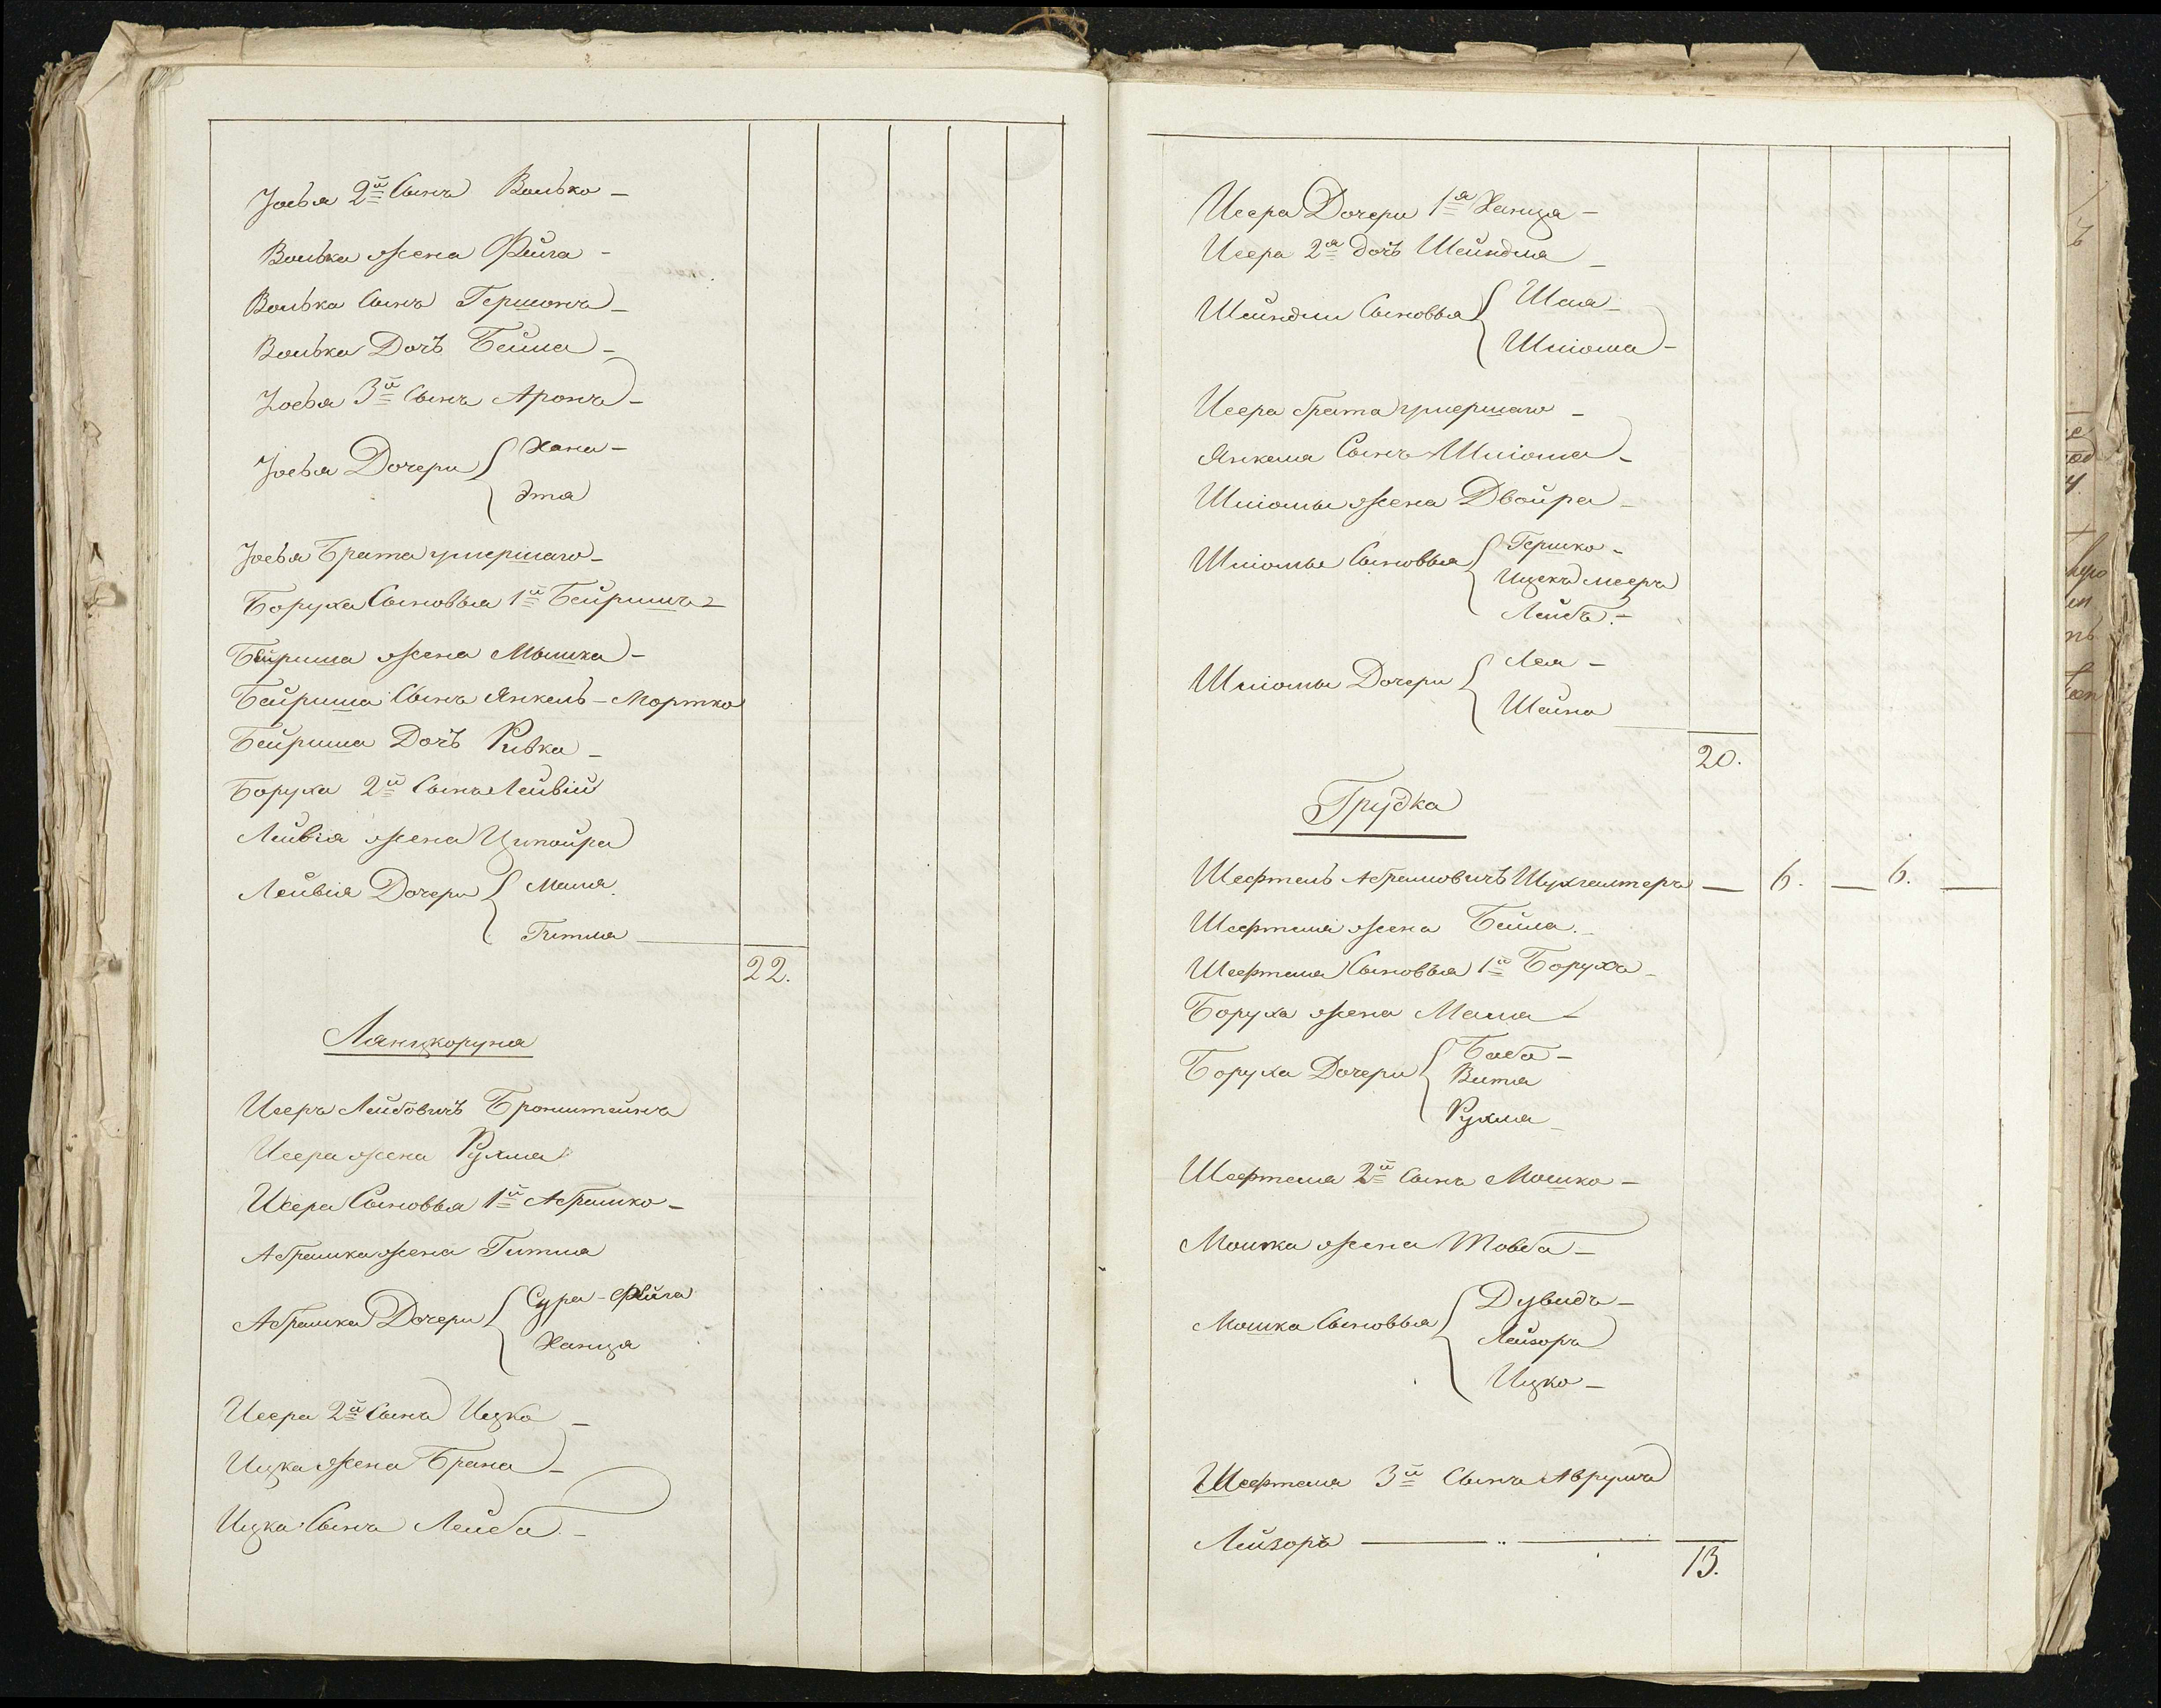 Іовія 2й Сынъ Волько –
Волька жена Фейга –
Волька Сынъ Гершонъ –
Волька Дочь Бейла –
Іовія 3й Сынъ Аронъ –
Іовія Дочери { Хана –
Эта
Іовія Брата умершаго –
Боруха Сыновья 1й Бейришъ –
Бейриша жена Мышка –
Бейриша Сынъ Янкель – Мортко
Бейриша Дочь Ривка –
Боруха 2й Сынъ Лейвій
Лейвія жена Ципойра
Лейвія Дочери { Маля.
Гитля
22.
Лянцкоруня
Исеръ Лейбовичъ Бронштейнъ
Исера жена Рухля
Исера Сыновья 1й Абрамко –
Абрамка жена Гитля
Абрамка Дочери { Сура – Фейга
Ханця
Исера 2й Сынъ Ицко –
Ицка жена Брана –
Ицка Сынъ Лейба –
Исера Дочери 1я Ханця –
Исера 2я дочь Шейндля –
Шейндли Сыновья { Шая –
Шліома –
Исера брата умершаго –
Янкеля Сынъ Шліома –
Шліомы жена Двойра –
Шліомы Сыновья { Гершко –
Ицекъ мееръ
Лейбъ. –
Шліомы Дочери { Лея –
Шейна
20.
Грудка
Шефтель Абрамовичъ Шухгалтеръ — 6. — 6. —
Шефтеля жена Бейла. –
Шефтеля Сыновья 1й Борухъ –
Боруха жена Маля –
Боруха Дочери { Баба –
Витя
Рухля –
Шефтеля 2й Сынъ Мошко –
Мошка жена Товба –
Мошка Сыновья { Дувидъ –
Лейзоръ
Ицко –
Шефтеля 3й Сынъ Аврумъ
Лейзоръ — „ —
13.